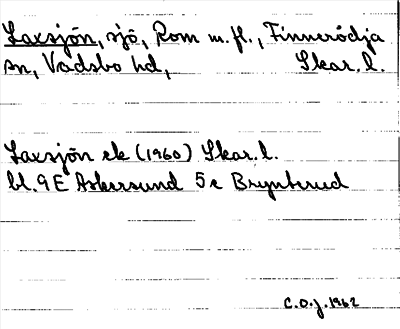 Laxsjön, sjö, Rom m. fl., Finnerödja
sn, Vadsbo hd, Skar. l.
Laxsjön ek (1960) Skar. l.
bl. 9E Askersund 5e Brynterud
C.O.J. 1962